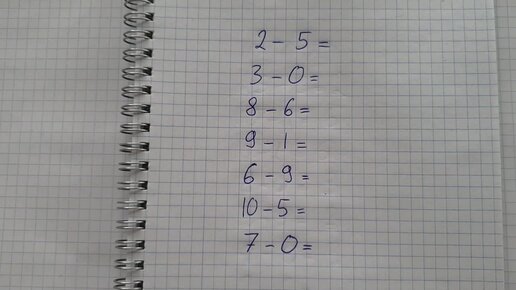 2 - 5 =
3 - 0 =
8 - 6 =
9 - 1 =
6 - 9 =
10 - 5 =
7 - 0 =